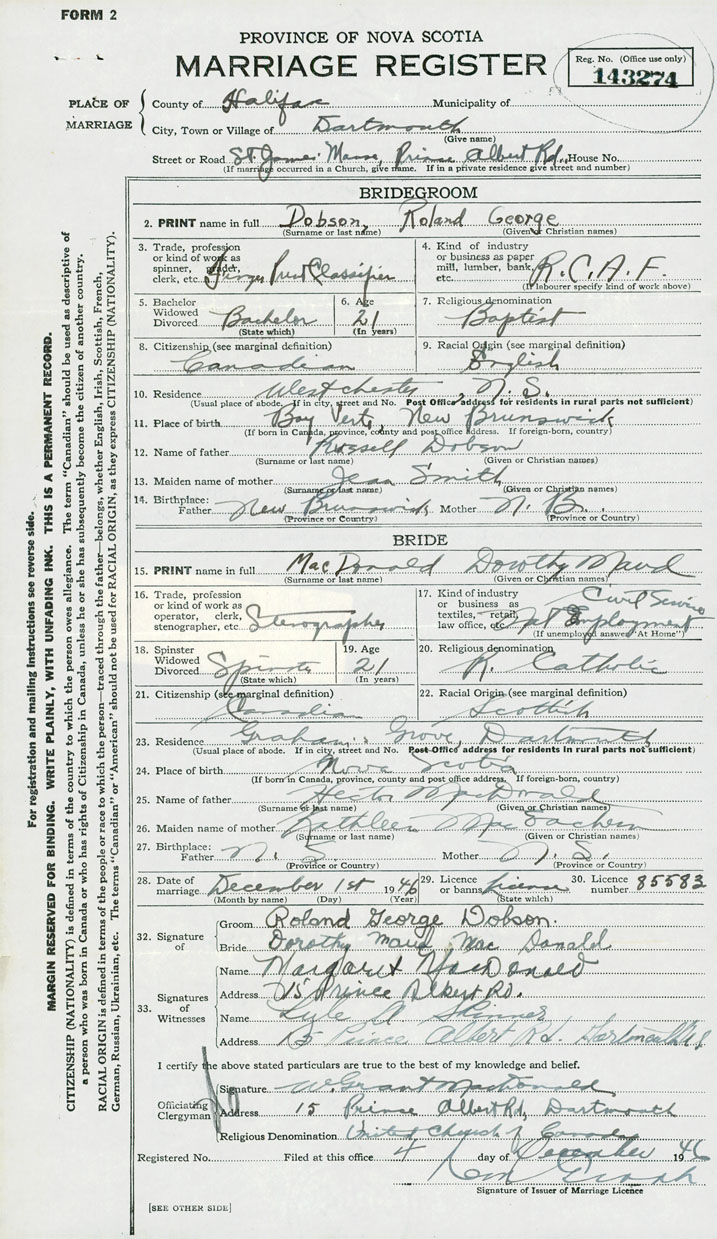 FORM 2
PROVINCE OF NOVA SCOTIA
MARRIAGE REGISTER
Reg. No. (Office use only)
143274
PLACE OF MARRIAGE
County of Halifax Municipality of
City, Town or Village of Dartmouth
(Give name)
Street or Road St. James Manse, Prince Albert Rd., House No.
(If marriage occurred in a Church, give name. If in a private residence give street and number)
BRIDEGROOM
2. PRINT name in full Dobson, Roland George
(Surname or last name) (Given or Christian names)
3. Trade, profession or kind of work as spinner, grader, clerk, etc. Classifier
4. Kind of industry or business as paper mill, lumber, bank, etc. R.C.A.F.
(If labourer specify kind of work above)
5. Bachelor Widowed Divorced Bachelor
(State which)
6. Age 21
(In years)
7. Religious denomination Baptist
8. Citizenship (see marginal definition) Canadian
9. Racial Origin (see marginal definition) English
10. Residence Westchester, N.S.
(Usual place of abode. If in city, street and No. Post Office address for residents in rural parts not sufficient)
11. Place of birth Bay Verte, New Brunswick
(If born in Canada, province, county and post office address. If foreign-born, country)
12. Name of father Russell Dobson
(Surname or last name) (Given or Christian names)
13. Maiden name of mother Jean Smith
(Surname or last name) (Given or Christian names)
14. Birthplace: Father New Brunswick Mother N. B.
(Province or Country) (Province or Country)
BRIDE
15. PRINT name in full MacDonald Dorothy Maud
(Surname or last name) (Given or Christian names)
16. Trade, profession or kind of work as operator, clerk, stenographer, etc. Stenographer
17. Kind of industry or business as textiles, retail, law office, etc. Civil Service Employment
(If unemployed answer "At Home")
18. Spinster Widowed Divorced Spinster
(State which)
19. Age 21
(In years)
20. Religious denomination R. Catholic
21. Citizenship (see marginal definition) Canadian
22. Racial Origin (see marginal definition) Scottish
23. Residence Graham's Grove, Dartmouth
(Usual place of abode. If in city, street and No. Post-Office address for residents in rural parts not sufficient)
24. Place of birth Nova Scotia
(If born in Canada, province, county and post office address. If foreign-born, country)
25. Name of father Hector MacDonald
(Surname or last name) (Given or Christian names)
26. Maiden name of mother Kathleen MacEachern
(Surname or last name) (Given or Christian names)
27. Birthplace: Father N. S. Mother N. S.
(Province or Country) (Province or Country)
28. Date of marriage December 1st 1946
(Month by name) (Day) (Year)
29. Licence or banns License
(State which)
30. Licence number 85583
32. Signature of
Groom Roland George Dobson.
Bride Dorothy Maud MacDonald
33. Signatures of Witnesses
Name Margaret MacDonald
Address 15 Prince Albert Rd.
Name Lyle A Skinner
Address 15 Prince Albert Rd. Dartmouth N.S.
I certify the above stated particulars are true to the best of my knowledge and belief.
Officiating Clergyman
Signature W. Grant MacDonald
Address 15 Prince Albert Rd, Dartmouth
Religious Denomination United Church of Canada
Registered No. Filed at this office 4 day of December 1946
Signature of Issuer of Marriage Licence
[SEE OTHER SIDE]
For registration and mailing instructions see reverse side.
MARGIN RESERVED FOR BINDING. WRITE PLAINLY, WITH UNFADING INK. THIS IS A PERMANENT RECORD.
CITIZENSHIP (NATIONALITY) is defined in terms of the country to which the person owes allegiance. The term "Canadian" should be used as descriptive of
a person who was born in Canada or who has rights of Citizenship in Canada, unless he or she has subsequently become the citizen of another country.
RACIAL ORIGIN is defined in terms of the people or race to which the person—traced through the father—belongs, whether English, Irish, Scottish, French,
German, Russian, Ukrainian, etc. The terms "Canadian" or "American" should not be used for RACIAL ORIGIN, as they express CITIZENSHIP (NATIONALITY).